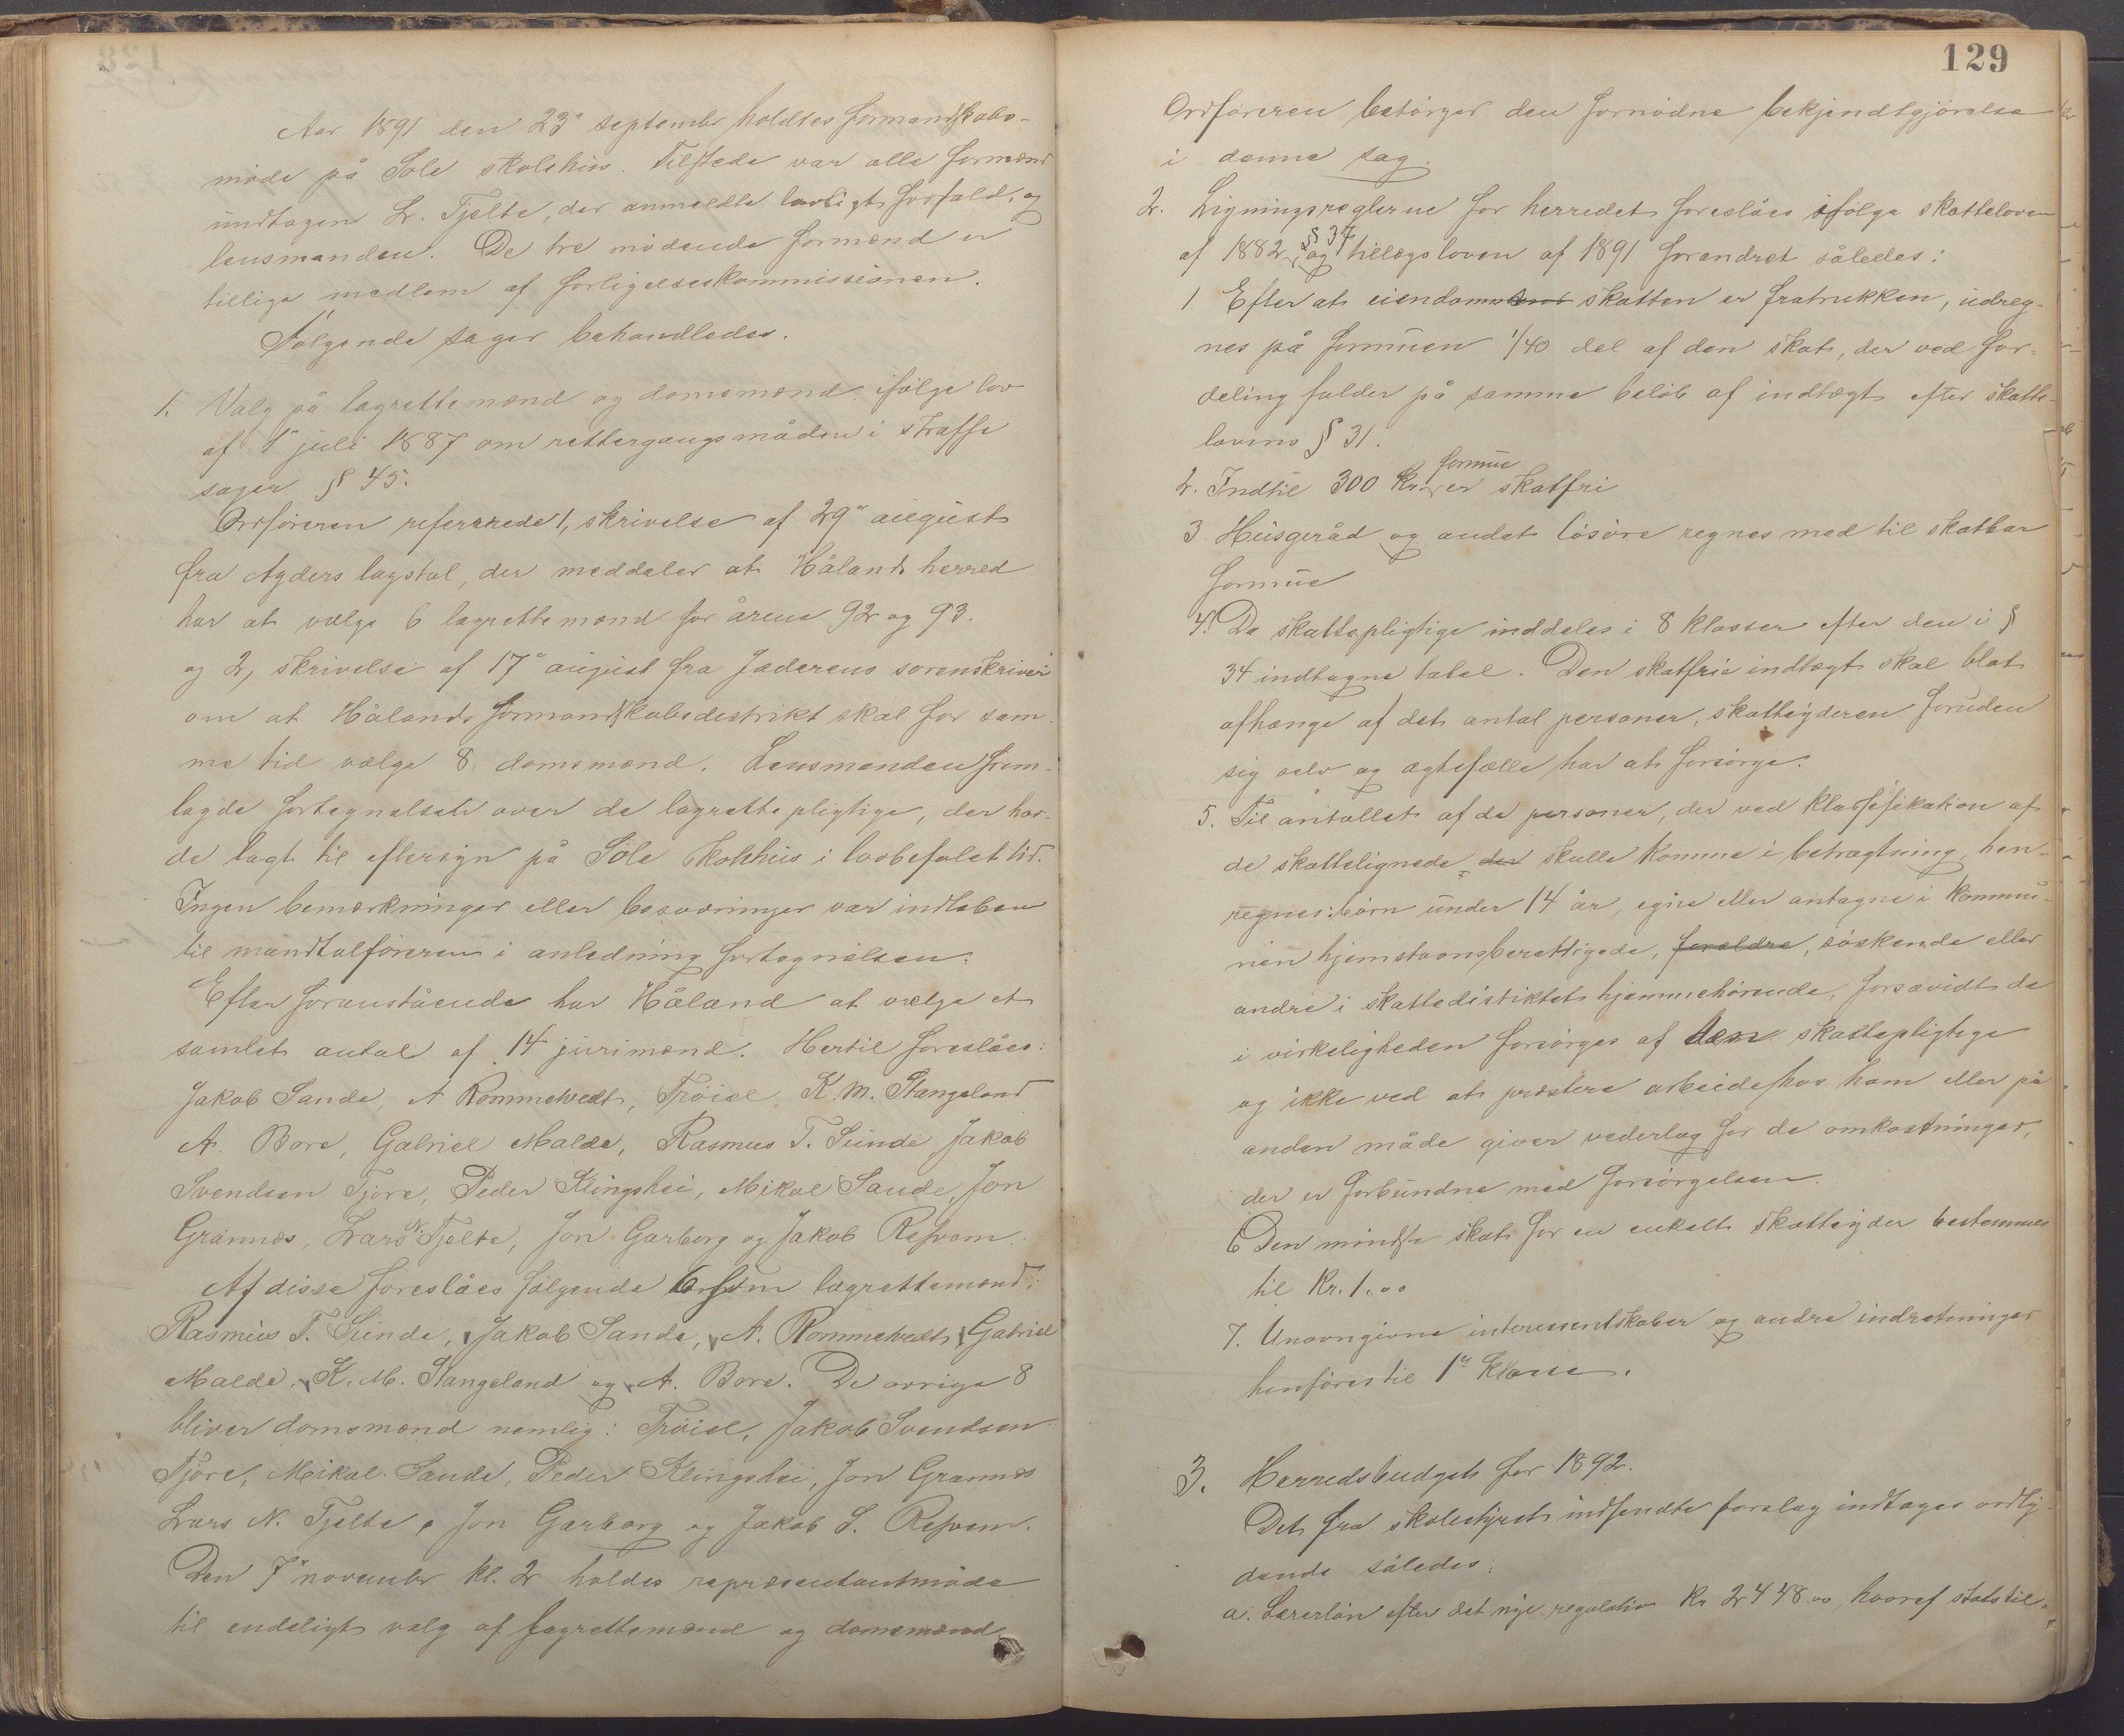 Aar 1891 den 23de september holdtes formandskabs-
møde på Sole skolehus. Tilstede var alle formænd
undtagen L. Tjelta, der anmeldte lovligt forfald, og
lensmanden. De tre mødende formænd er
tillige medlem af forligelseskommissionen.
Følgende sager behandledes.
1. Valg på lagrettemænd og domsmænd ifølge lov
af 1ste juli 1887 om rettergangsmåden i straffe
sager § 45.
Ordføreren refererede 1, skrivelse af 29de august
fra Agders lagstol, der meddeler at Hålands herred
har at vælge 6 lagrettemænd for årene 92 og 93.
og 2, skrivelse af 17de august fra Jæderens sorenskriveri
om at Hålands formandskabsdistrikt skal for sam-
me tid vælge 8 domsmænd. Lensmanden frem-
lagde fortegnelsen over de lagrettepligtige, der hav-
de lagt til eftersyn på Sole skolehus i lovbefalet tid.
Ingen bemærkninger eller besværinger var indløben
til mandtalføreren i anledning fortegnelsen.
Efter foranstående har Håland at vælge et
samlet antal af 14 jurimænd. Hertil foreslåes:
Jakob Sande, A Rommetvedt, Trøiel, K. M. Stangeland
A. Bore, Gabriel Malde, Rasmus T. Sunde Jakob
Svendsen Tjøre, Peder Klingshei, Mikal Sande, Jon
Grannæs, Lars N. Tjelta, Jon Garborg og Jakob Refvem.
Af disse foreslåes følgende 6 som lagrettemænd:
Rasmus T. Sunde, Jakob Sande, A. Rommetvedt, Gabriel
Malde, K. M. Stangeland og A. Bore. De øvrige 8
bliver domsmænd nemlig: Trøiel, Jakob Svendsen
Tjøre, Mikal Sande, Peder Klingshei, Jon Grannæs
Lars N. Tjelta, Jon Garborg og Jakob S. Refvem.
Den 7de november kl. 2 holdes repræsentantmøde
til endeligt valg af lagrettemænd og domsmænd
129
Ordføreren besørger den fornødne bekjendtgjørelse
i denne sag.
2. Ligningsreglerne for herredet foreslåes ifølge skatteloven
af 1882 § 37 og tillægsloven af 1891 forandret således:
1. Efter at eiendomsskatten er fratrukken, udreg-
nes på formuen 1/40 del af den skat, der ved for-
deling falder på samme beløb af indtægt efter skatte-
lovens § 31.
2. Indtil 300 Kr. formue er skatfri
3. Husgeråd og andet løsøre regnes med til skatbar
formue
4. De skattepligtige inddeles i 8 klasser efter den i §
34 indtagne tabel. Den skatfrie indtægt skal blot
afhænge af det antal personer, skatteyderen foruden
sig selv og ægtefælle har at forsørge.
5. Til antallet af de personer, der ved klassifikation af
de skattelignede der skulle komme i betragtning, hen-
regnes: børn under 14 år, egne eller antagne i kommu-
nen hjemstavnsberettigede, forældre, søskende eller
andre i skattedistriktet hjemmehørende, forsåvidt de
i virkeligheden forsørges af den skattepligtige
og ikke ved at præstere arbeide hos ham eller på
anden måde giver vederlag for de omkostninger,
der er forbundne med forsørgelsen.
6 Den mindste skat for en enkelt skatteyder bestemmes
til Kr. 1.00
7. Unavngivne interessentskaber og andre indretninger
henføres til 1ste klasse.
3. Herredsbudget for 1892.
Det fra skolestyret indsendte forslag indtages ordly-
dende således:
a. Lærerløn efter det nye regulativ Kr 2448.00, hvoraf statstil-